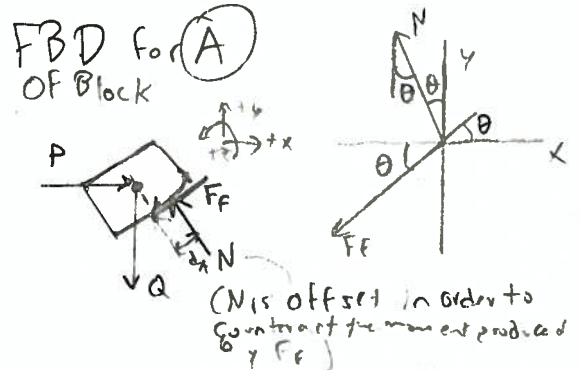 FBD for A
OF Block
N
Y
θ θ
θ
+y
+x
X
P
θ
FF
FF
N
dA
Q
(N is offset in order to
counteract the moment produced
by FF)